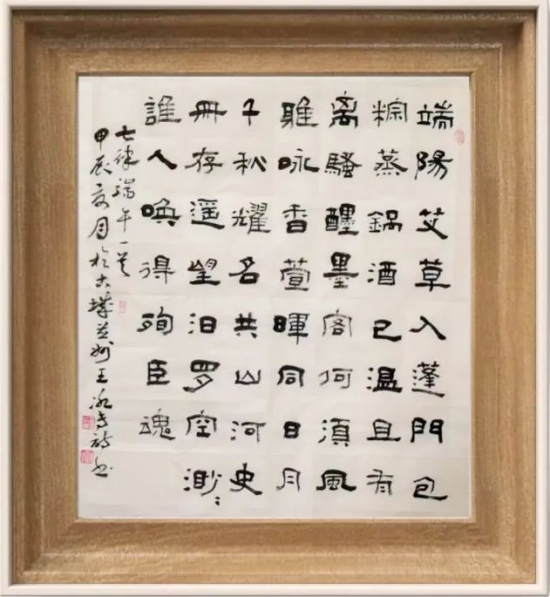 端陽艾草入蓬門包
粽蒸鍋酒已温且有
离騷醒墨客何須風
雅咏香萱暉同日月
千秋耀名共山河史
冊存遥望汨罗空渺〻
誰人唤得殉臣魂
七律端午一首
甲辰夏月於古城并州王